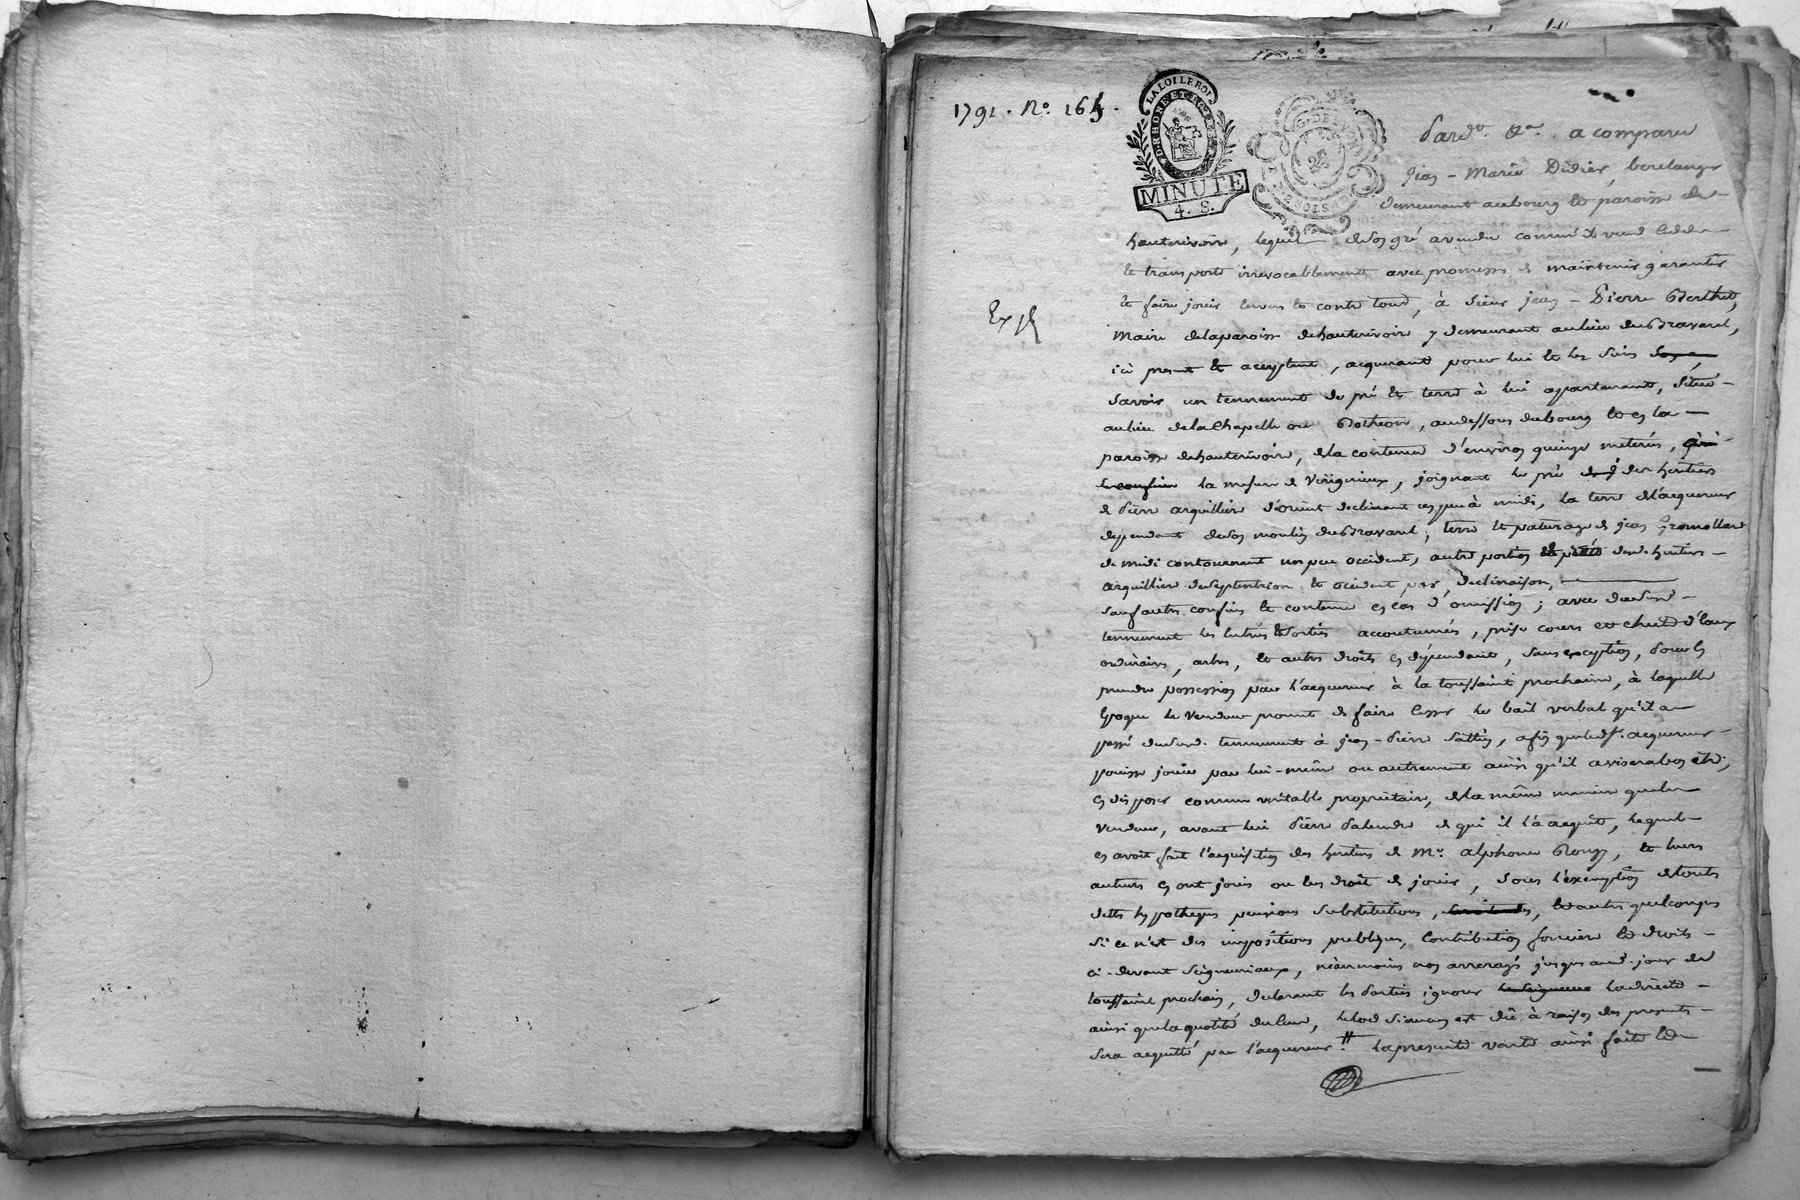 1791. N.º 164.
LA LOI LE ROI
D. RHONE ET
MINUTE
4. S.
G. DE LYON
Pard.t &a. a comparu
jean-Marie Didier, boulanger
demeurant au bourg et paroisse de
hauterivoire, lequel de son gré a vendu comme il vend cede
et transporte irrevocablement avec promesse de maintenir garantir
et faire jouir envers et contre tous, à sieur jean-Pierre Berthet,
Expé
Maire de la paroisse de hauterivoire y demeurant au lieu du Bravard,
ici present et acceptant, acquerant pour lui et les siens
savoir un tennement de pré et terre à lui apartenant, situé
au lieu de la Chapelle ou , au dessous du bourg et en la
paroisse de hauterivoire, de la contenue d'environ quinze meterés,
la mesure de , joignant le pré des héritiers
de Pierre arquillière d'orient declinant un peu à midi, la terre de l'acquereur
dependant de son moulin du Bravard, terre et paturage de jean
de midi contournant un peu occident, autre portion desd. héritiers
arquillière de septentrion et occident par déclinaison,
sauf autres confins et contenue en cas d'omission; avec dud.
tennement les entrés et sorties accoutumés, prise cours et chute d'eaux
ordinaires, arbres, et autres droits en dépendant, sans exception, pour en
prendre possession par l'acquereur à la toussaint prochaine, à laquelle
époque le vendeur promet de faire cesser le bail verbal qu'il a
passé dud. tennement à jean-Pierre , afin que led. s. acquereur
puisse jouir par lui-même ou autrement ainsi qu'il avisera bon être,
en disposer comme veritable propriétaire, de la même maniere que le
vendeur, avant lui Pierre de qui il l'a acquit, lequel
en avoit fait l'acquisition des héritiers de Mr. alphonse , et leurs
auteurs en ont joui ou eu droit de jouir, sous l'exemption de toutes
dettes hypotheques pensions substitutions, et autres quelconques
si ce n'est des impositions publiques, contribution fonciere et droits
ci-devant seigneuriaux, néanmoins non arreragés jusques aud. jour de
toussaint prochain, declarant les Parties ignorer le seigneur la directe
ainsi que la quotité du cens, le lod si aucun est dû à raison des presentes
sera acquitté par l'acquereur. La presente vente ainsi faite et